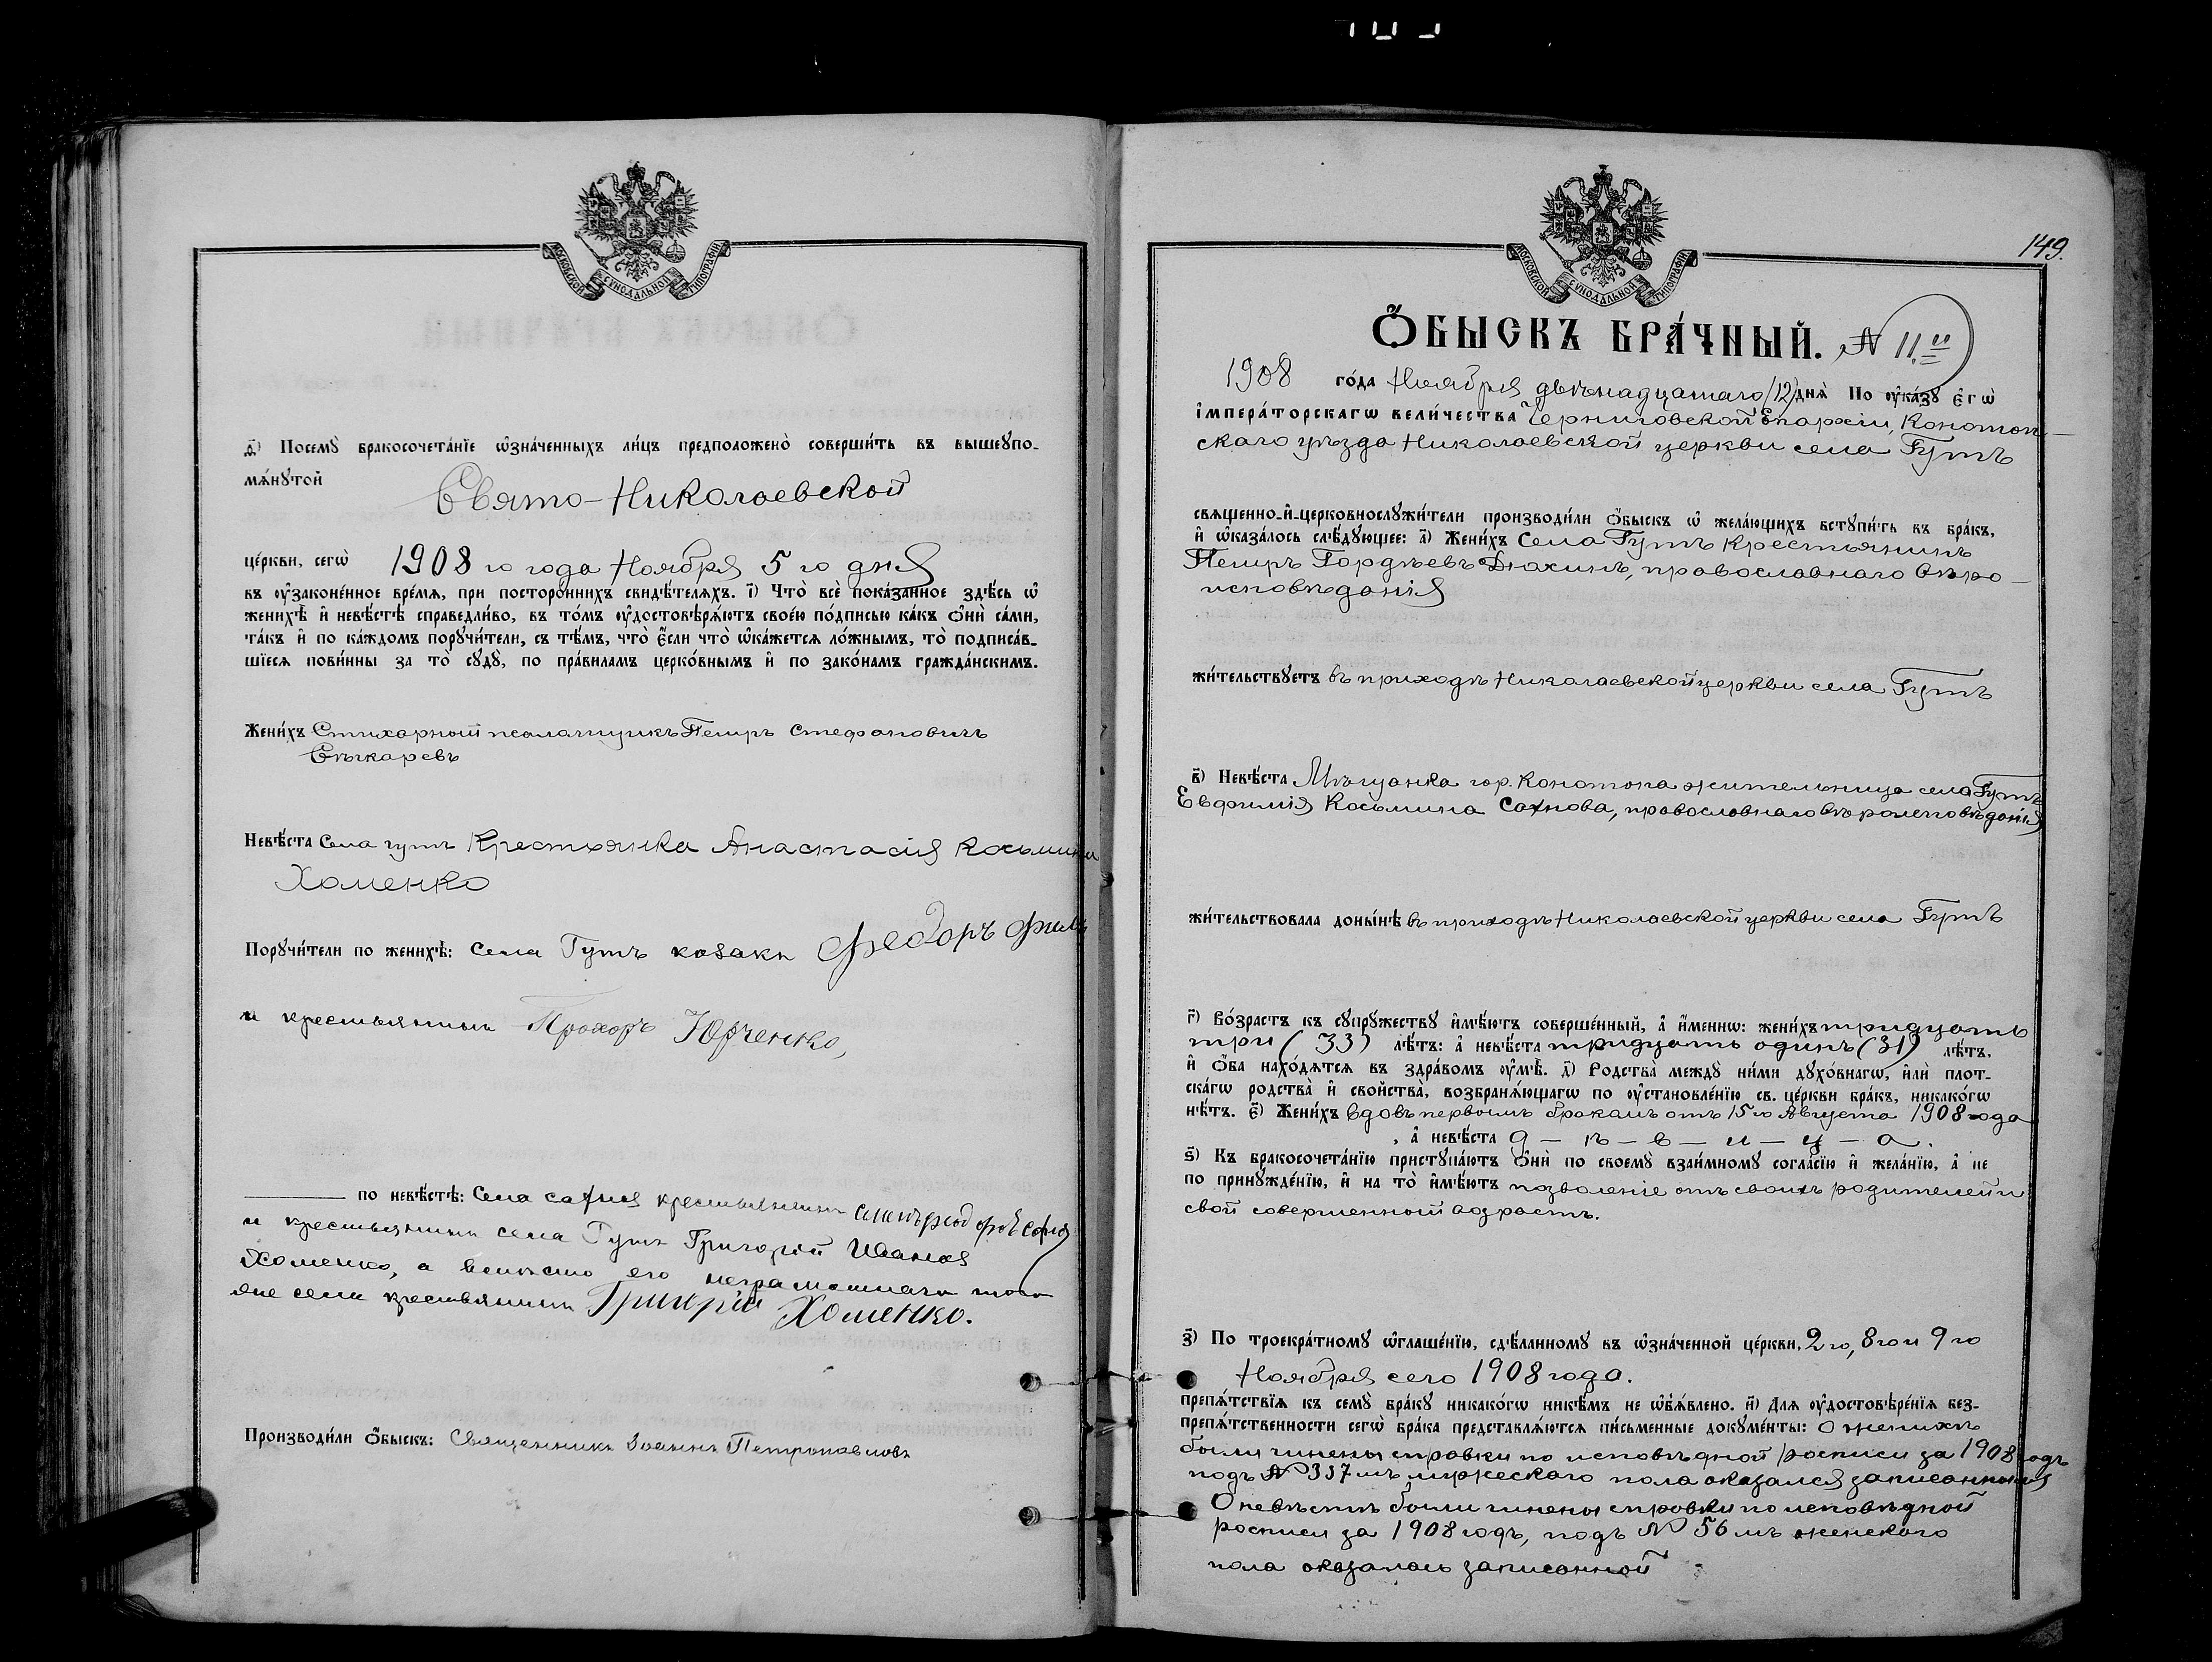 МОСКОВСКОЙ СѴНОДАЛЬНОЙ ТИПОГРАФІИ
д҃) Посемꙋ̀ бракосочета́нїе ѡ҆зна́ченныхъ ли́цъ предположено̀ соверши́ть въ вышеꙋпо-
мѧ́нꙋтой
Свято-Николаевской
це́ркви, сегѡ̀ 1908 го года Ноября 5 го дня
въ ᲂу҆зако́не́нное вре́мѧ, при посторо́ннихъ свидѣ́телѧхъ. і҃) Что̀ всѐ пока́занное здѣ́сь ѡ҆
женихѣ̀ и҆ невѣ́стѣ справедли́во, въ то́мъ ᲂу҆достовѣрѧ́ютъ свое́ю по́дписью ка́къ ѻ҆нѝ са́ми,
та́къ и҆ по ка́ждомъ порꙋчи́тели, съ тѣ́мъ, что̀ є҆́сли что̀ ѡ҆ка́жетсѧ ло́жнымъ, то̀ подписа́в-
шїесѧ пови́нны за то̀ сꙋдꙋ̀, по пра́виламъ церко́внымъ и҆ по зако́намъ гражда́нскимъ.
Жени́хъ Стихарный псаломщикъ Петръ Стефановичъ
Невѣ́ста Села гутъ Крестьянка Анастасія Косьмина
Хоменко
Порꙋчи́тели по женихѣ̀: Села Гутъ козакъ Федоръ
и крестьянинъ Прохоръ Юрченко,
по невѣ́стѣ: Села крестьянинъ
и крестьянинъ села Гутъ Григорій Ивановъ
Хоменко, а вмѣсто его неграмотнаго того
же села крестьянинъ Григорій Хоменко.
Производи́ли ѻ҆́быскъ: Священникъ Іоаннъ Петропавловъ
149.
МОСКОВСКОЙ СѴНОДАЛЬНОЙ ТИПОГРАФІИ
Ѻ҆́БЫСКЪ БРА́ЧНЫЙ. № 11.й
1908 го́да Ноября двѣнадцатаго /12/ днѧ̀ По ᲂу҆ка́зꙋ є҆гѡ̀
і҆мпера́торскагѡ вели́чества Черниговской Епархіи, Конотоп-
скаго уѣзда Николаевской церкви села Гутъ
свѧщенно-и҆-церковнослꙋжи́тели производи́ли ѻ҆́быскъ ѡ҆ жела́ющихъ встꙋпи́ть въ бра́къ,
и҆ ѡ҆каза́лось слѣ́дꙋющее: а҃) Жени́хъ Села Гутъ крестьянинъ
Петръ Гордѣевъ Дюкинъ, православнаго вѣро-
исповѣданія
жи́тельствꙋетъ въ приходѣ Николаевской церкви села Гутъ
в҃) Невѣ́ста Мѣщанка гор. Конотопа жительница села Гутъ
Евфимія Косьмина Сахнова, православнаго вѣроисповѣданія
жи́тельствовала донынѣ въ приходѣ Николаевской церкви села Гутъ
г҃) Во́зрастъ къ сꙋпрꙋжествꙋ и҆мѣ́ютъ соверше́нный, а҆ и҆́меннѡ: жени́хъ тридцать
три (33) лѣ́тъ: а҆ невѣ́ста тридцать одинъ (31) лѣ́тъ.
и҆ ѻ҆́ба нахо́дѧтсѧ въ здра́вомъ ᲂу҆мѣ̀. д҃) Родства̀ междꙋ̀ ни́ми дꙋхо́внагѡ, и҆лѝ пло́т-
ска́гѡ родства̀ и҆ сво́йства̀, возбранѧ́ющагѡ по ᲂу҆становле́нїю св. це́ркви бра́къ, никако́гѡ
нѣ́тъ. є҃) Жени́хъ вдовъ первымъ бракомъ отъ 15 го Августа 1908 года
, а҆ невѣ́ста д - ѣ - в - и - ц - а.
ѕ҃) Къ бракосочета́нїю пристꙋпа́ютъ ѻ҆нѝ по своемꙋ̀ взаи́мномꙋ согла́сїю и҆ жела́нїю, а҆ не
по принꙋжде́нїю, и҆ на то̀ и҆мѣ́ютъ позволеніе отъ своихъ родителей и
свой совершенный возрастъ.
з҃) По троекра́тномꙋ ѡ҆глаше́нїю, сдѣ́ланномꙋ въ ѡ҆зна́ченной це́ркви, 2 го, 8 го и 9 го
Ноября сего 1908 года.
препѧ́тствїѧ къ семꙋ̀ бра́кꙋ никако́гѡ никѣ́мъ не ѡ҆б̾ѧ́влено. и҃) Длѧ ᲂу҆достовѣре́нїѧ без-
препѧ́тственности сегѡ̀ бра́ка представлѧ́ютсѧ пи́сьменные докꙋме́нты: О женихѣ
были чинены справки по исповѣдной росписи за 1908 годъ
подъ № 337 мъ мужескаго пола оказался записаннымъ
О невѣстѣ были чинены справки по исповѣдной
росписи за 1908 годъ, подъ № 56 мъ женскаго
пола оказалась записанной